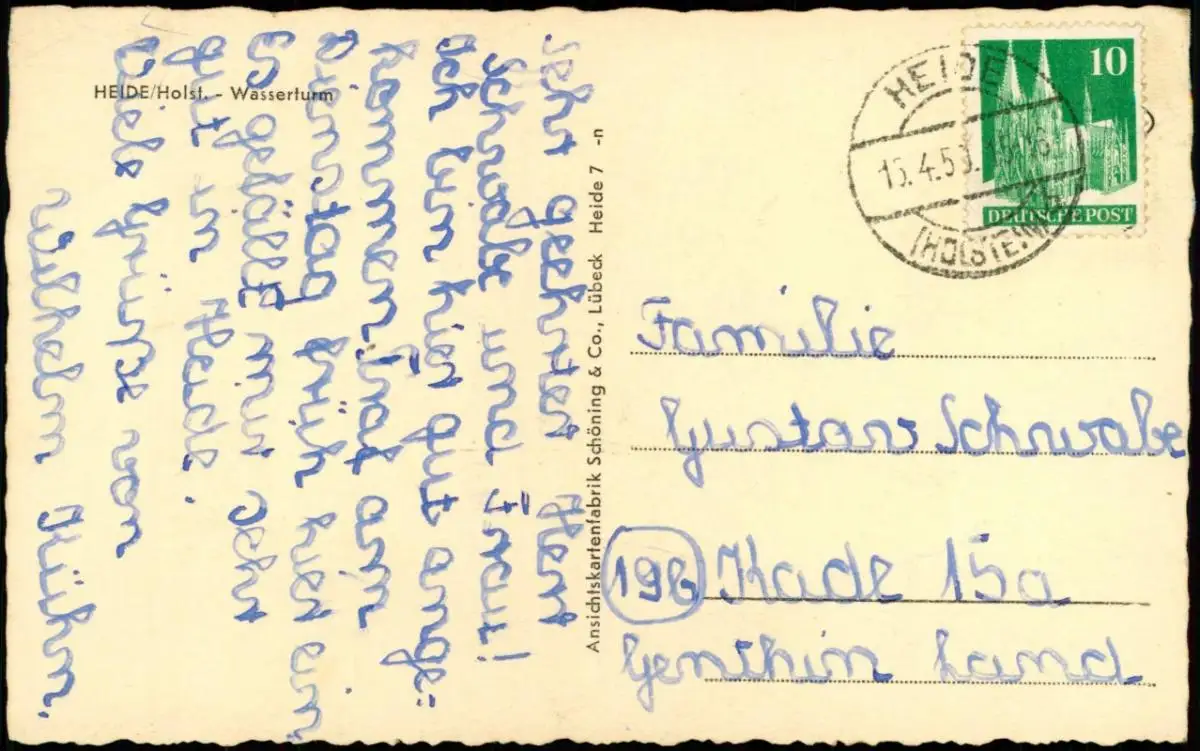 HEIDE/Holst. - Wasserturm
Sehr geehrter Herr
Schwabe und Frau!
Ich bin hier gut ange=
kommen. Traf am
Dienstag früh hier ein.
Es gefällt mir sehr
gut in Heide.
Viele Grüße von
Wilhelm Kühn.
Ansichtskartenfabrik Schöning & Co., Lübeck Heide 7 -n
HEIDE
15.4.5
(HOLSTEIN)
10
DEUTSCHE POST
Familie
Gustav Schwabe
(19b) Kade 15a
Genthin Land